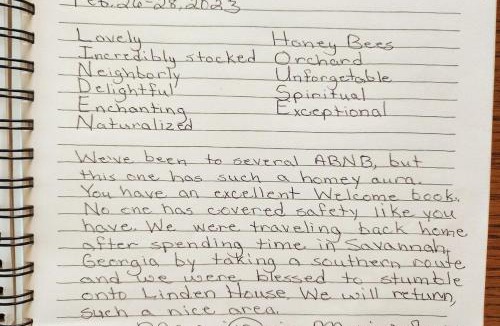 Feb. 26-28, 2023
Lovely
Incredibly stocked
Neighborly
Delightful
Enchanting
Naturalized
Honey Bees
Orchard
Unforgetable
Spiritual
Exceptional
We've been to several ABNB, but
this one has such a homey aura.
You have an excellent Welcome book.
No one has covered safety like you
have. We were traveling back home
after spending time in Savannah,
Georgia by taking a southern route
and we were blessed to stumble
onto Linden House. We will return,
such a nice area.